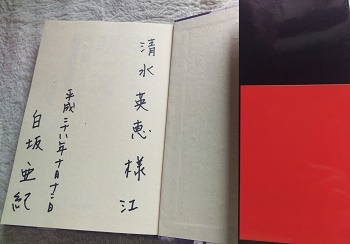 清水英恵様江
平成二十八年十月十二日
白坂亜紀